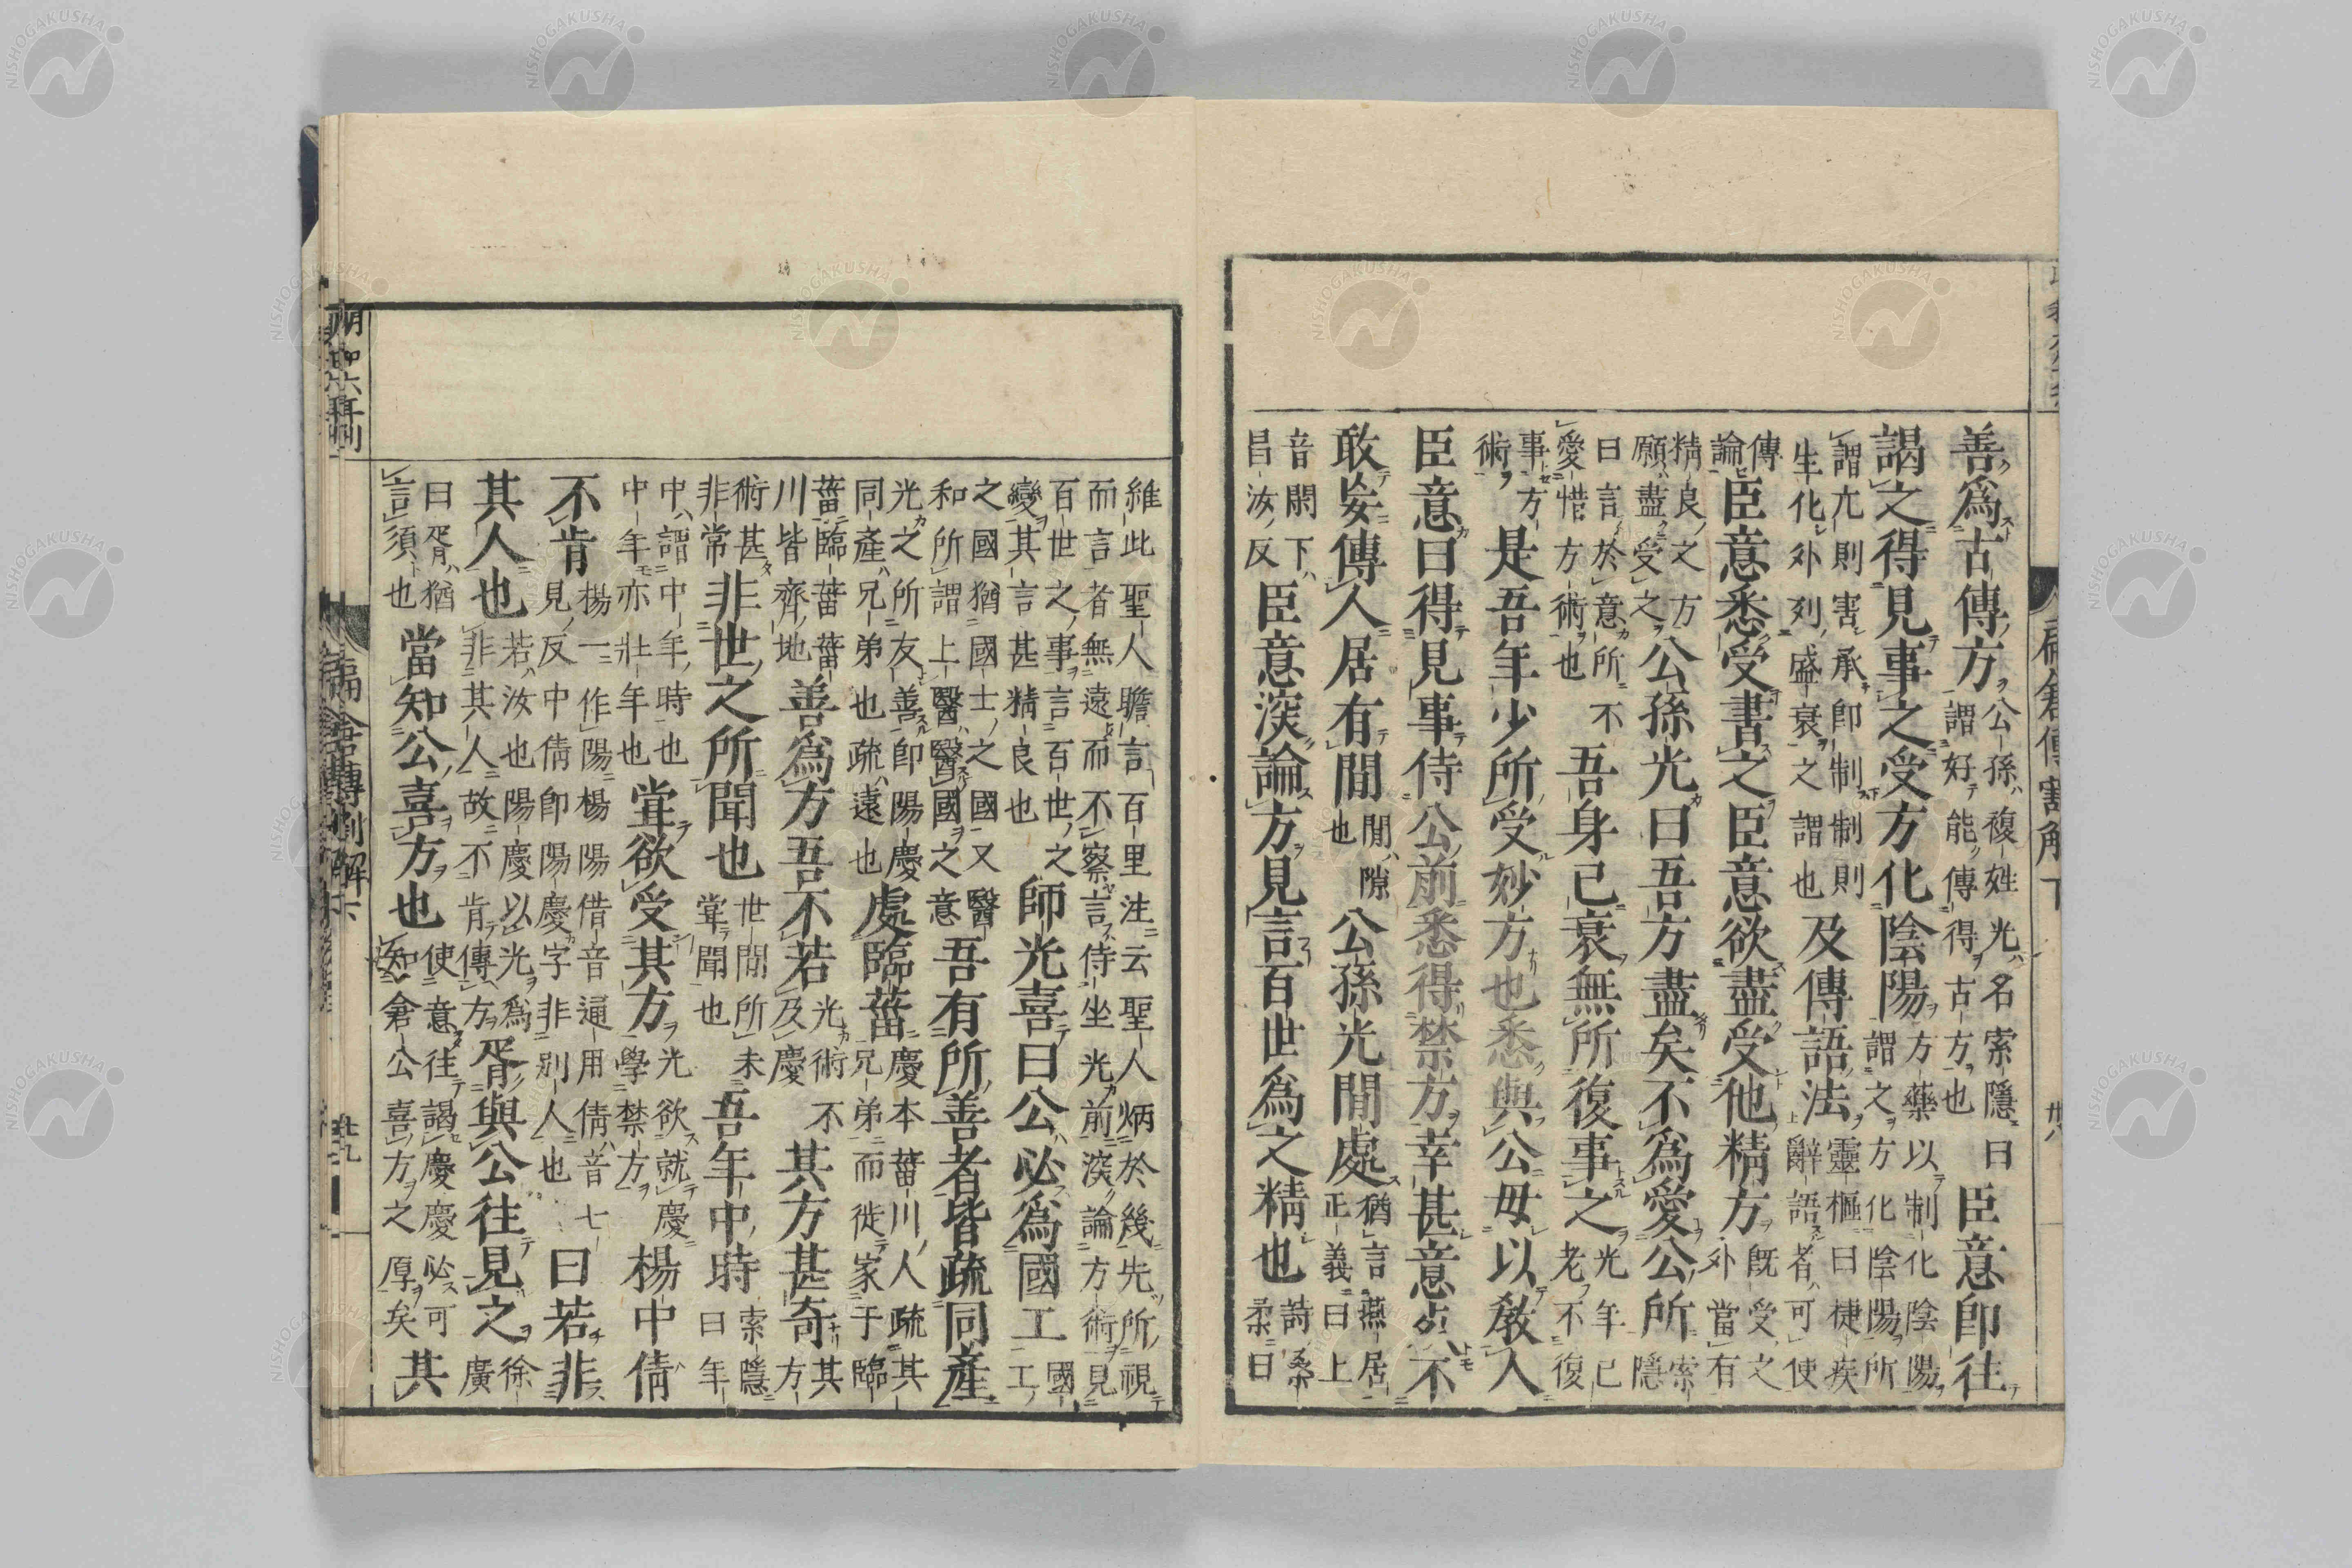 扁倉傳割解 下 廿八
善爲古傳方公孫複姓光名索隱曰
謂好能傳得古方也臣意即往
謁之得見事之受方化陰陽方藥以制化陰陽
謂之方化陰陽所
謂亢則害承即制制則
生化外列盛衰之謂也及傳語法靈樞曰捷疾
辭語者可使
傳
論臣意悉受書之臣意欲盡受他精方既受之
外當有
精良之方
願盡受之公孫光曰吾方盡矣不爲愛公所索
隱
曰言於意所不
愛惜方術也吾身已衰無所復事之光年已
老不復
事方
術是吾年少所受妙方也悉與公毋以敎人
臣意曰得見事侍公前悉得禁方幸甚意死不
敢妄傳人居有間閒隙
也公孫光閒處猶言燕居
正義曰上
音閑下
昌汝反臣意深論方見言百世爲之精也詩桑
柔曰
維此聖人瞻言百里注云聖人炳於幾先所視
而言者無遠而不察言侍坐光前深論方術見
百世之事言百世之
變其言甚精良也師光喜曰公必爲國工國
工
之國猶國士之國又醫
和所謂上醫醫國之意吾有所善者皆疏同產
光之所友善即陽慶
同產兄弟也疏遠也處臨菑慶本菑川人疏其
兄弟而徙家于臨
菑臨菑菑
川皆齊地善爲方吾不若光術不
及慶其方甚奇其
方
術甚
非常非世之所聞也世間所未
甞聞也吾年中時索隱
曰年
中謂中年時也
中年亦壯年也甞欲受其方光欲就慶
學禁方楊中倩
不肯楊一作陽楊陽借音通用倩音七
見反中倩即陽慶字非別人也曰若非
其人也若汝也陽慶以光爲
非其人故不肯傳方胥與公往見之徐
廣
曰胥猶
言須也當知公喜方也使意往謁慶慶必可
知倉公喜方之厚矣其
扁倉傳割解 下 廿九